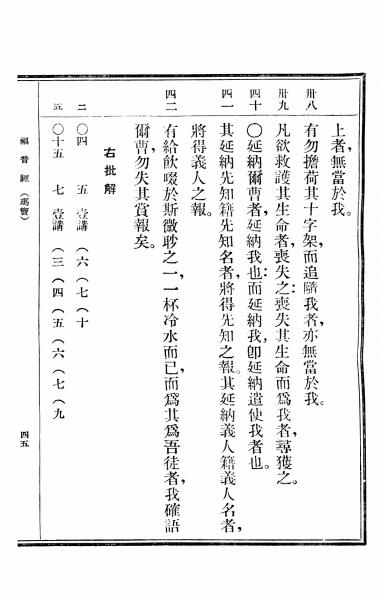 上者，無當於我。
卅八
有勿擔荷其十字架，而追隨我者，亦無當於我。
卅九
凡欲救護其生命者，喪失之；喪失其生命而爲我者，尋獲之。
四十
〇延納爾曹者，延納我也；而延納我，卽延納遣使我者也。
四一
其延納先知籍先知名者，將得先知之報。其延納義人籍義人名者，
將得義人之報。
四二
有給飮啜於斯微眇之一，一杯冷水而已，而爲其爲吾徒者，我確語
爾曹，勿失其賞報矣。
右批解
二
〇四 五 壹講 (六(七(十
五
〇十五 七 壹講 (三(四(五(六(七(九
福音經 (瑪竇)
四五